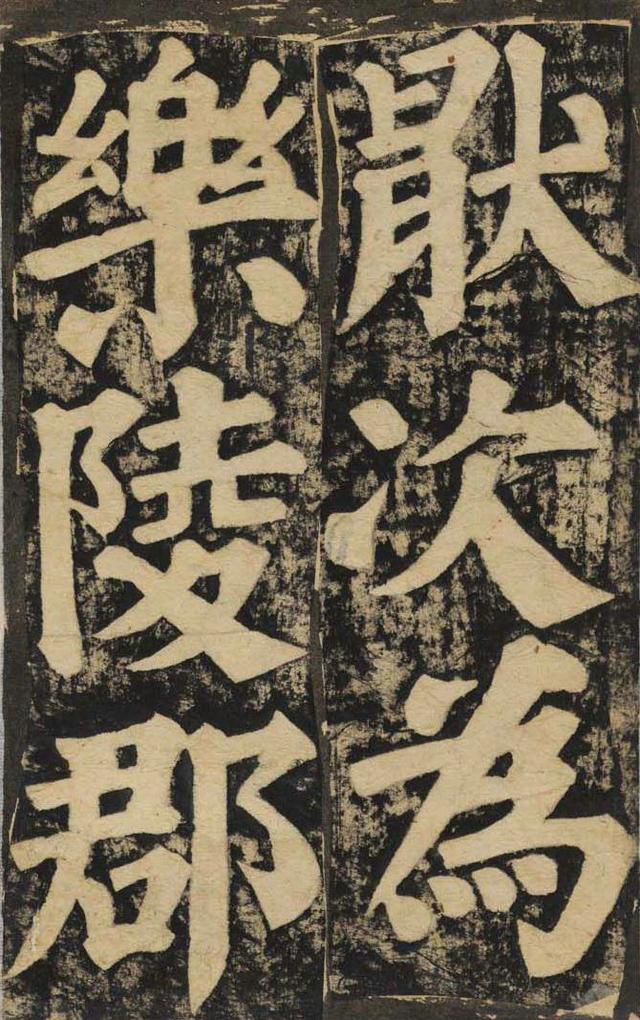 猒次為
樂陵郡